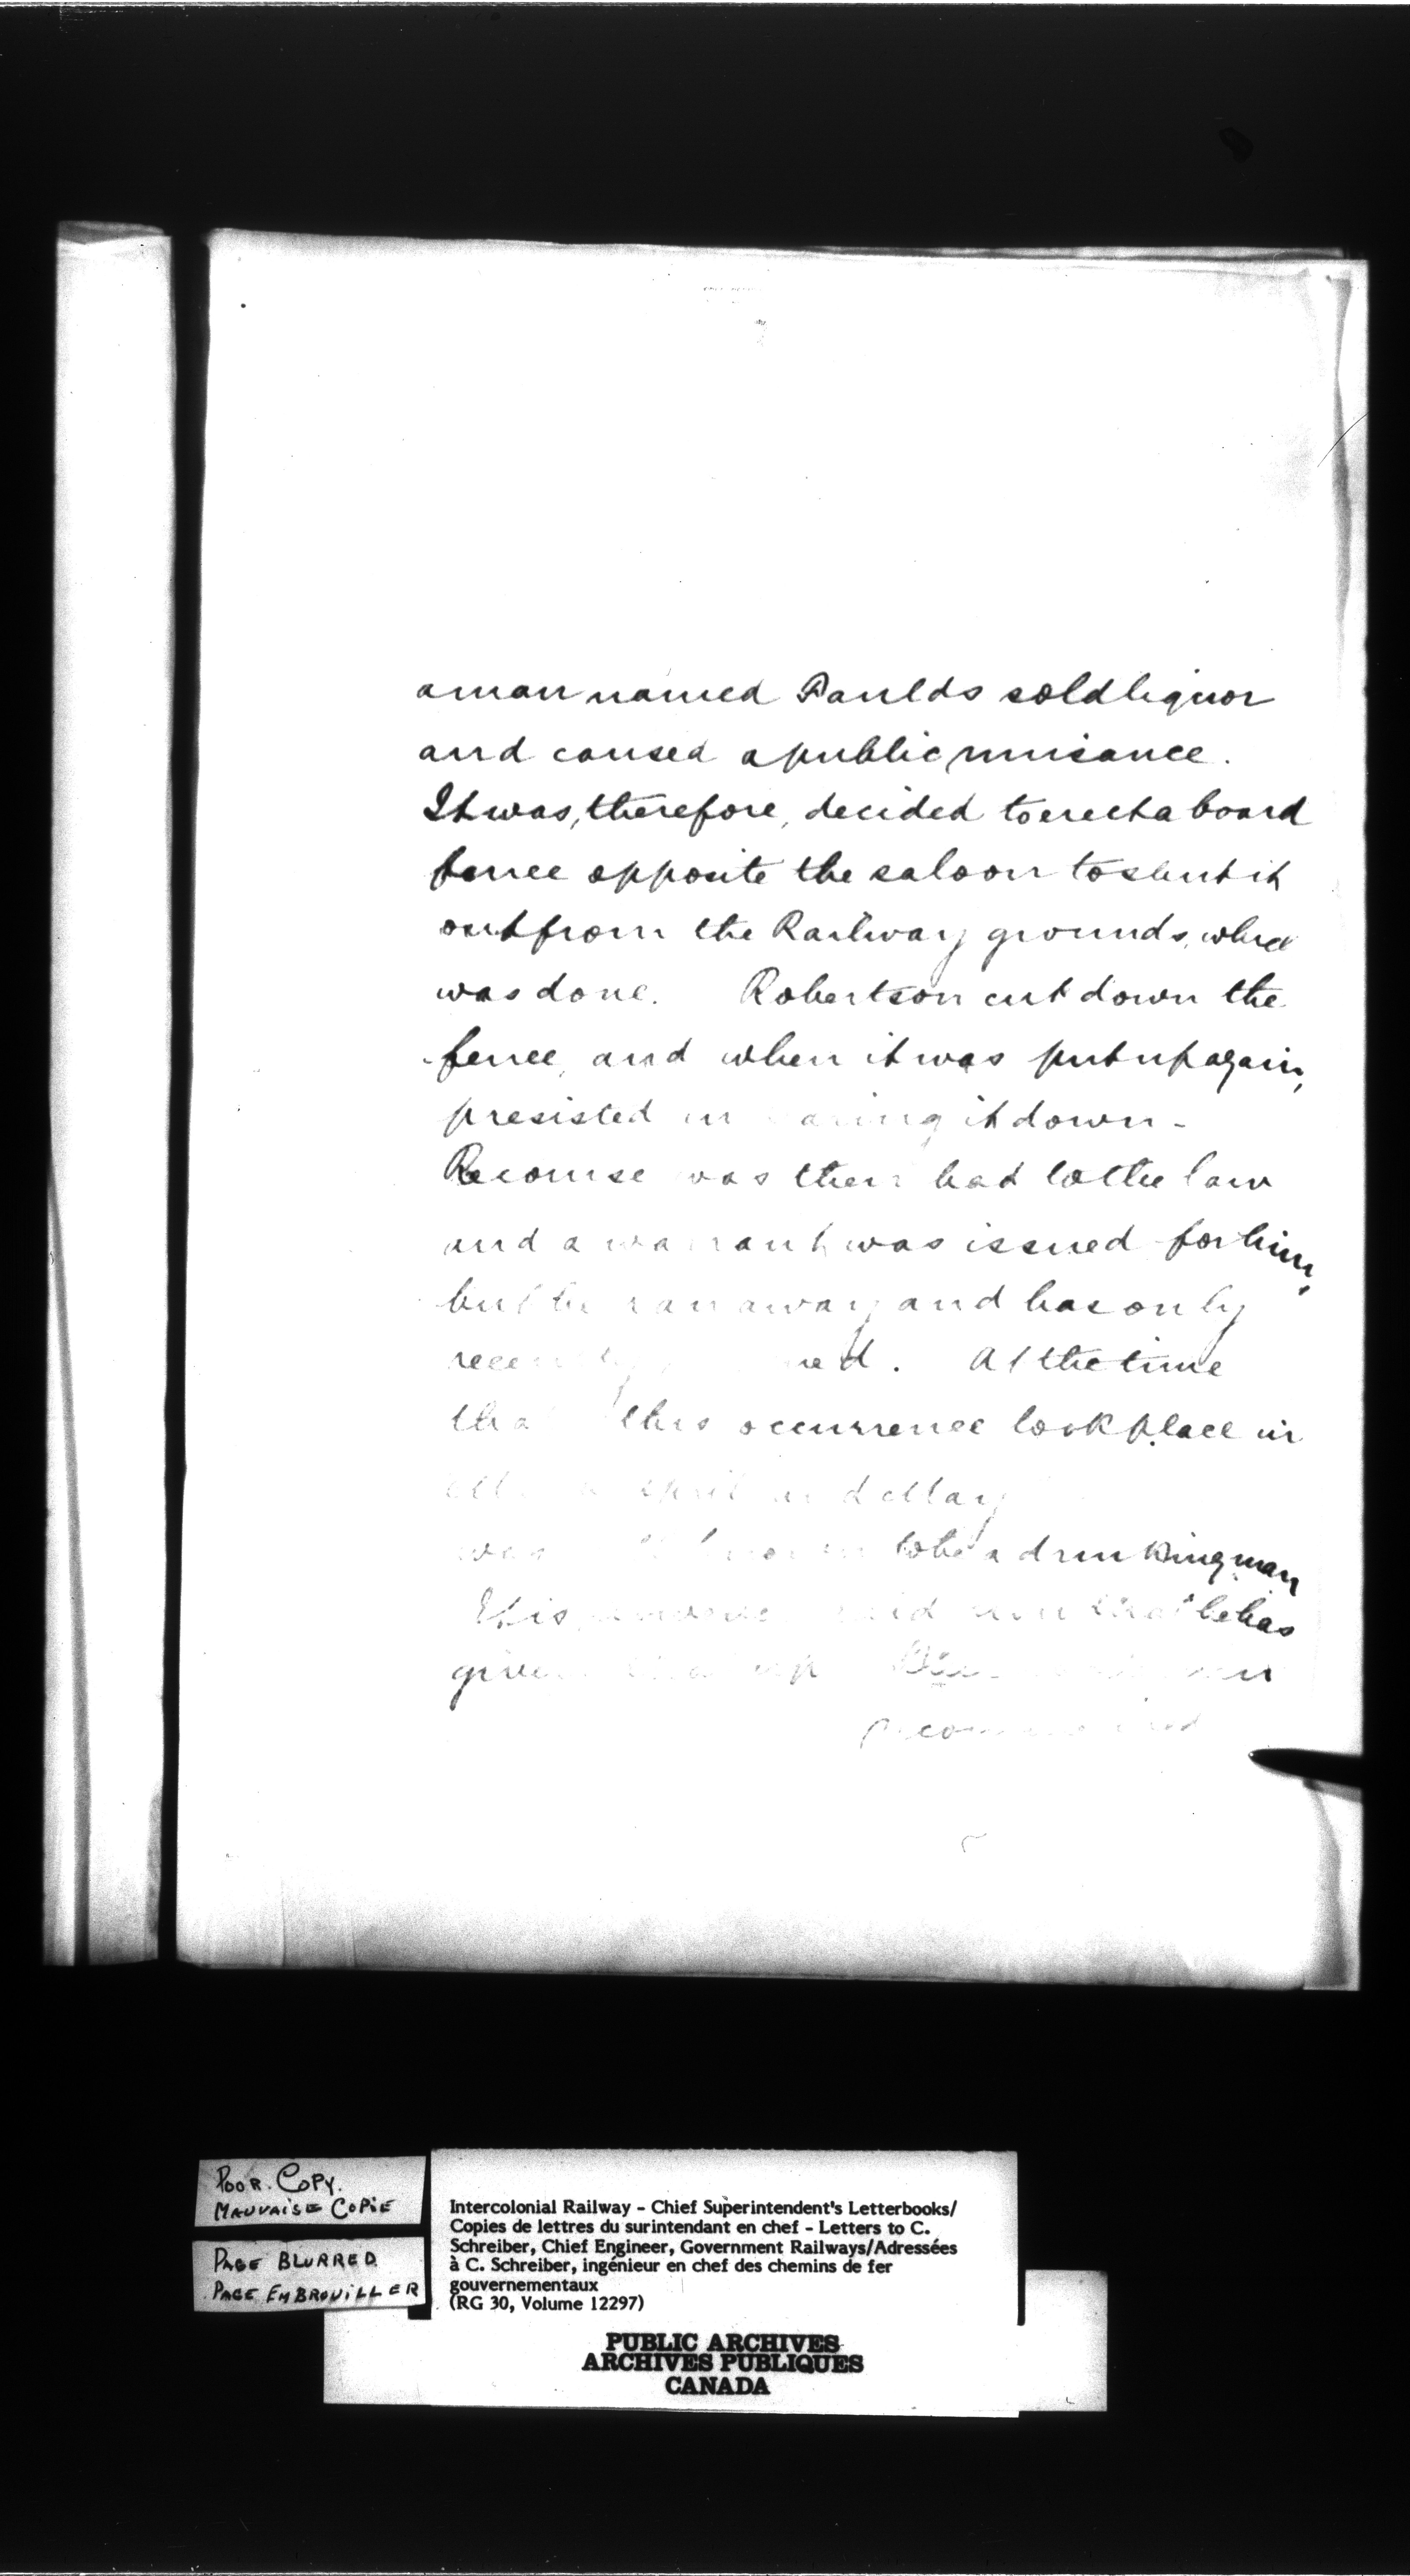 a man named Faulds sold liquor
and caused a public nuisance.
It was, therefore, decided to erect a board
fence opposite the saloon to shut it
out from the Railway grounds, which
was done. Robertson cut down the
fence, and when it was put up again,
presisted in it down -
Recourse was then had to the law
and a warrant was issued for him,
but he ran away and has only
recently At the time
that this occurrence took place in
April and May
was known to be a drinking man
It is said that he has
given up

Poor. Copy.
Mauvaise Copie
Page Blurred
Page Embrouiller
Intercolonial Railway – Chief Superintendent's Letterbooks/
Copies de lettres du surintendant en chef – Letters to C.
Schreiber, Chief Engineer, Government Railways/Adressées
à C. Schreiber, ingénieur en chef des chemins de fer
gouvernementaux
(RG 30, Volume 12297)
PUBLIC ARCHIVES
ARCHIVES PUBLIQUES
CANADA